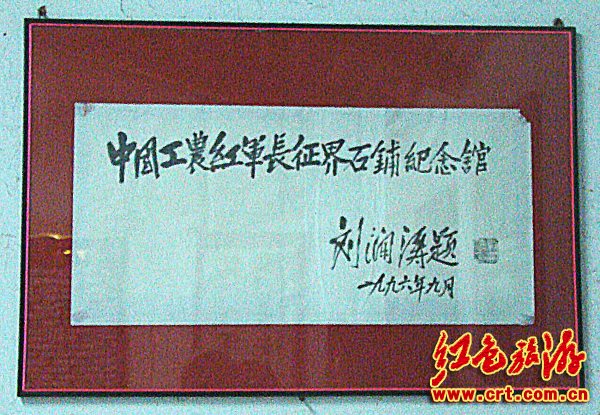 中国工農紅軍長征界石鋪紀念館
刘澜涛題
一九九六年九月
红色旅游
www.crt.com.cn